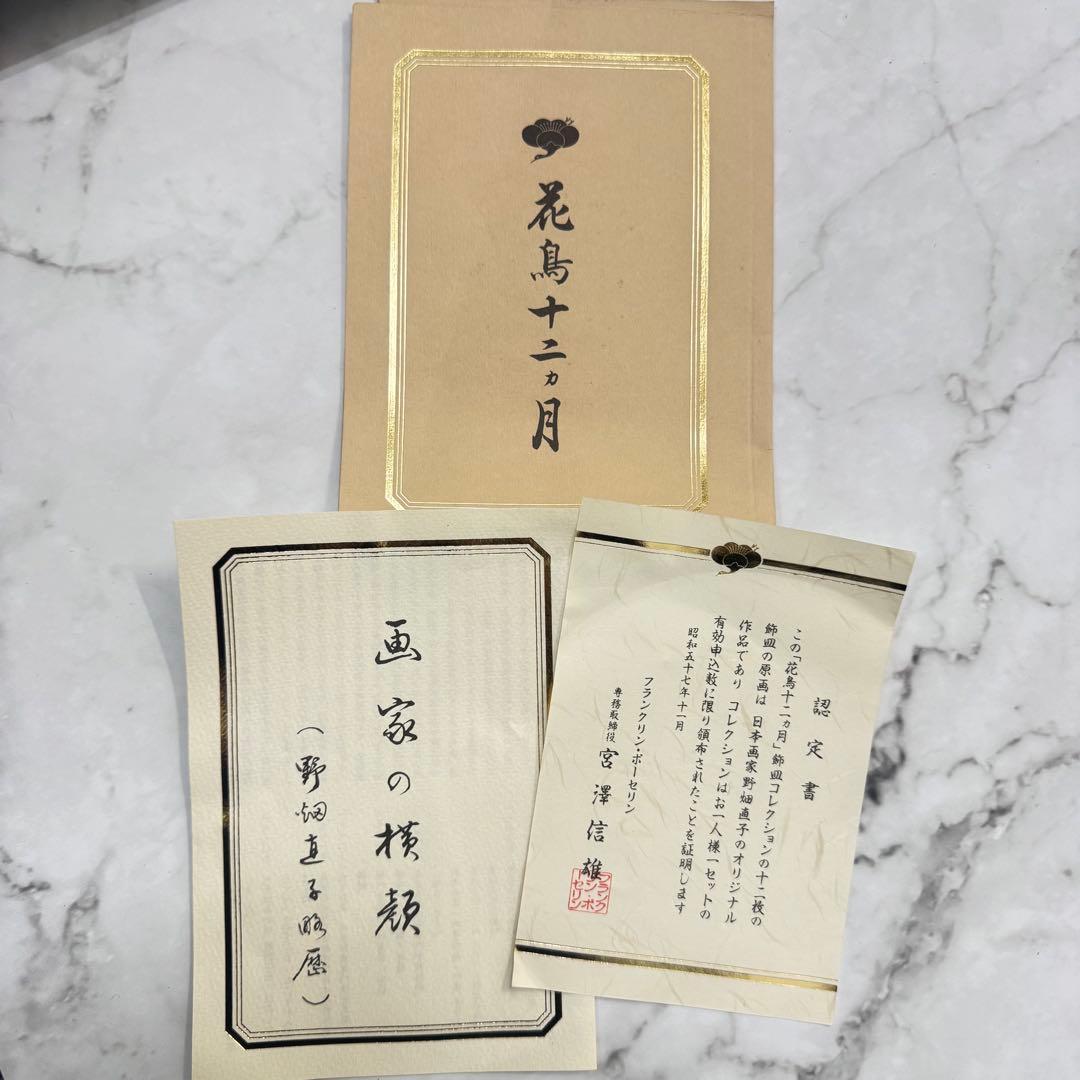 花鳥十二ヵ月
画家の横顔
(野畑直子略歴)
認定書
この「花鳥十二ヵ月」飾皿コレクションの十二枚の
飾皿の原画は 日本画家野畑直子のオリジナル
作品であり コレクションはお一人様一セットの
有効申込数に限り頒布されたことを証明します
昭和五十七年十一月
フランクリン・ポーセリン
専務取締役 宮澤信雄
フランク
リン・ポ
ーセリン